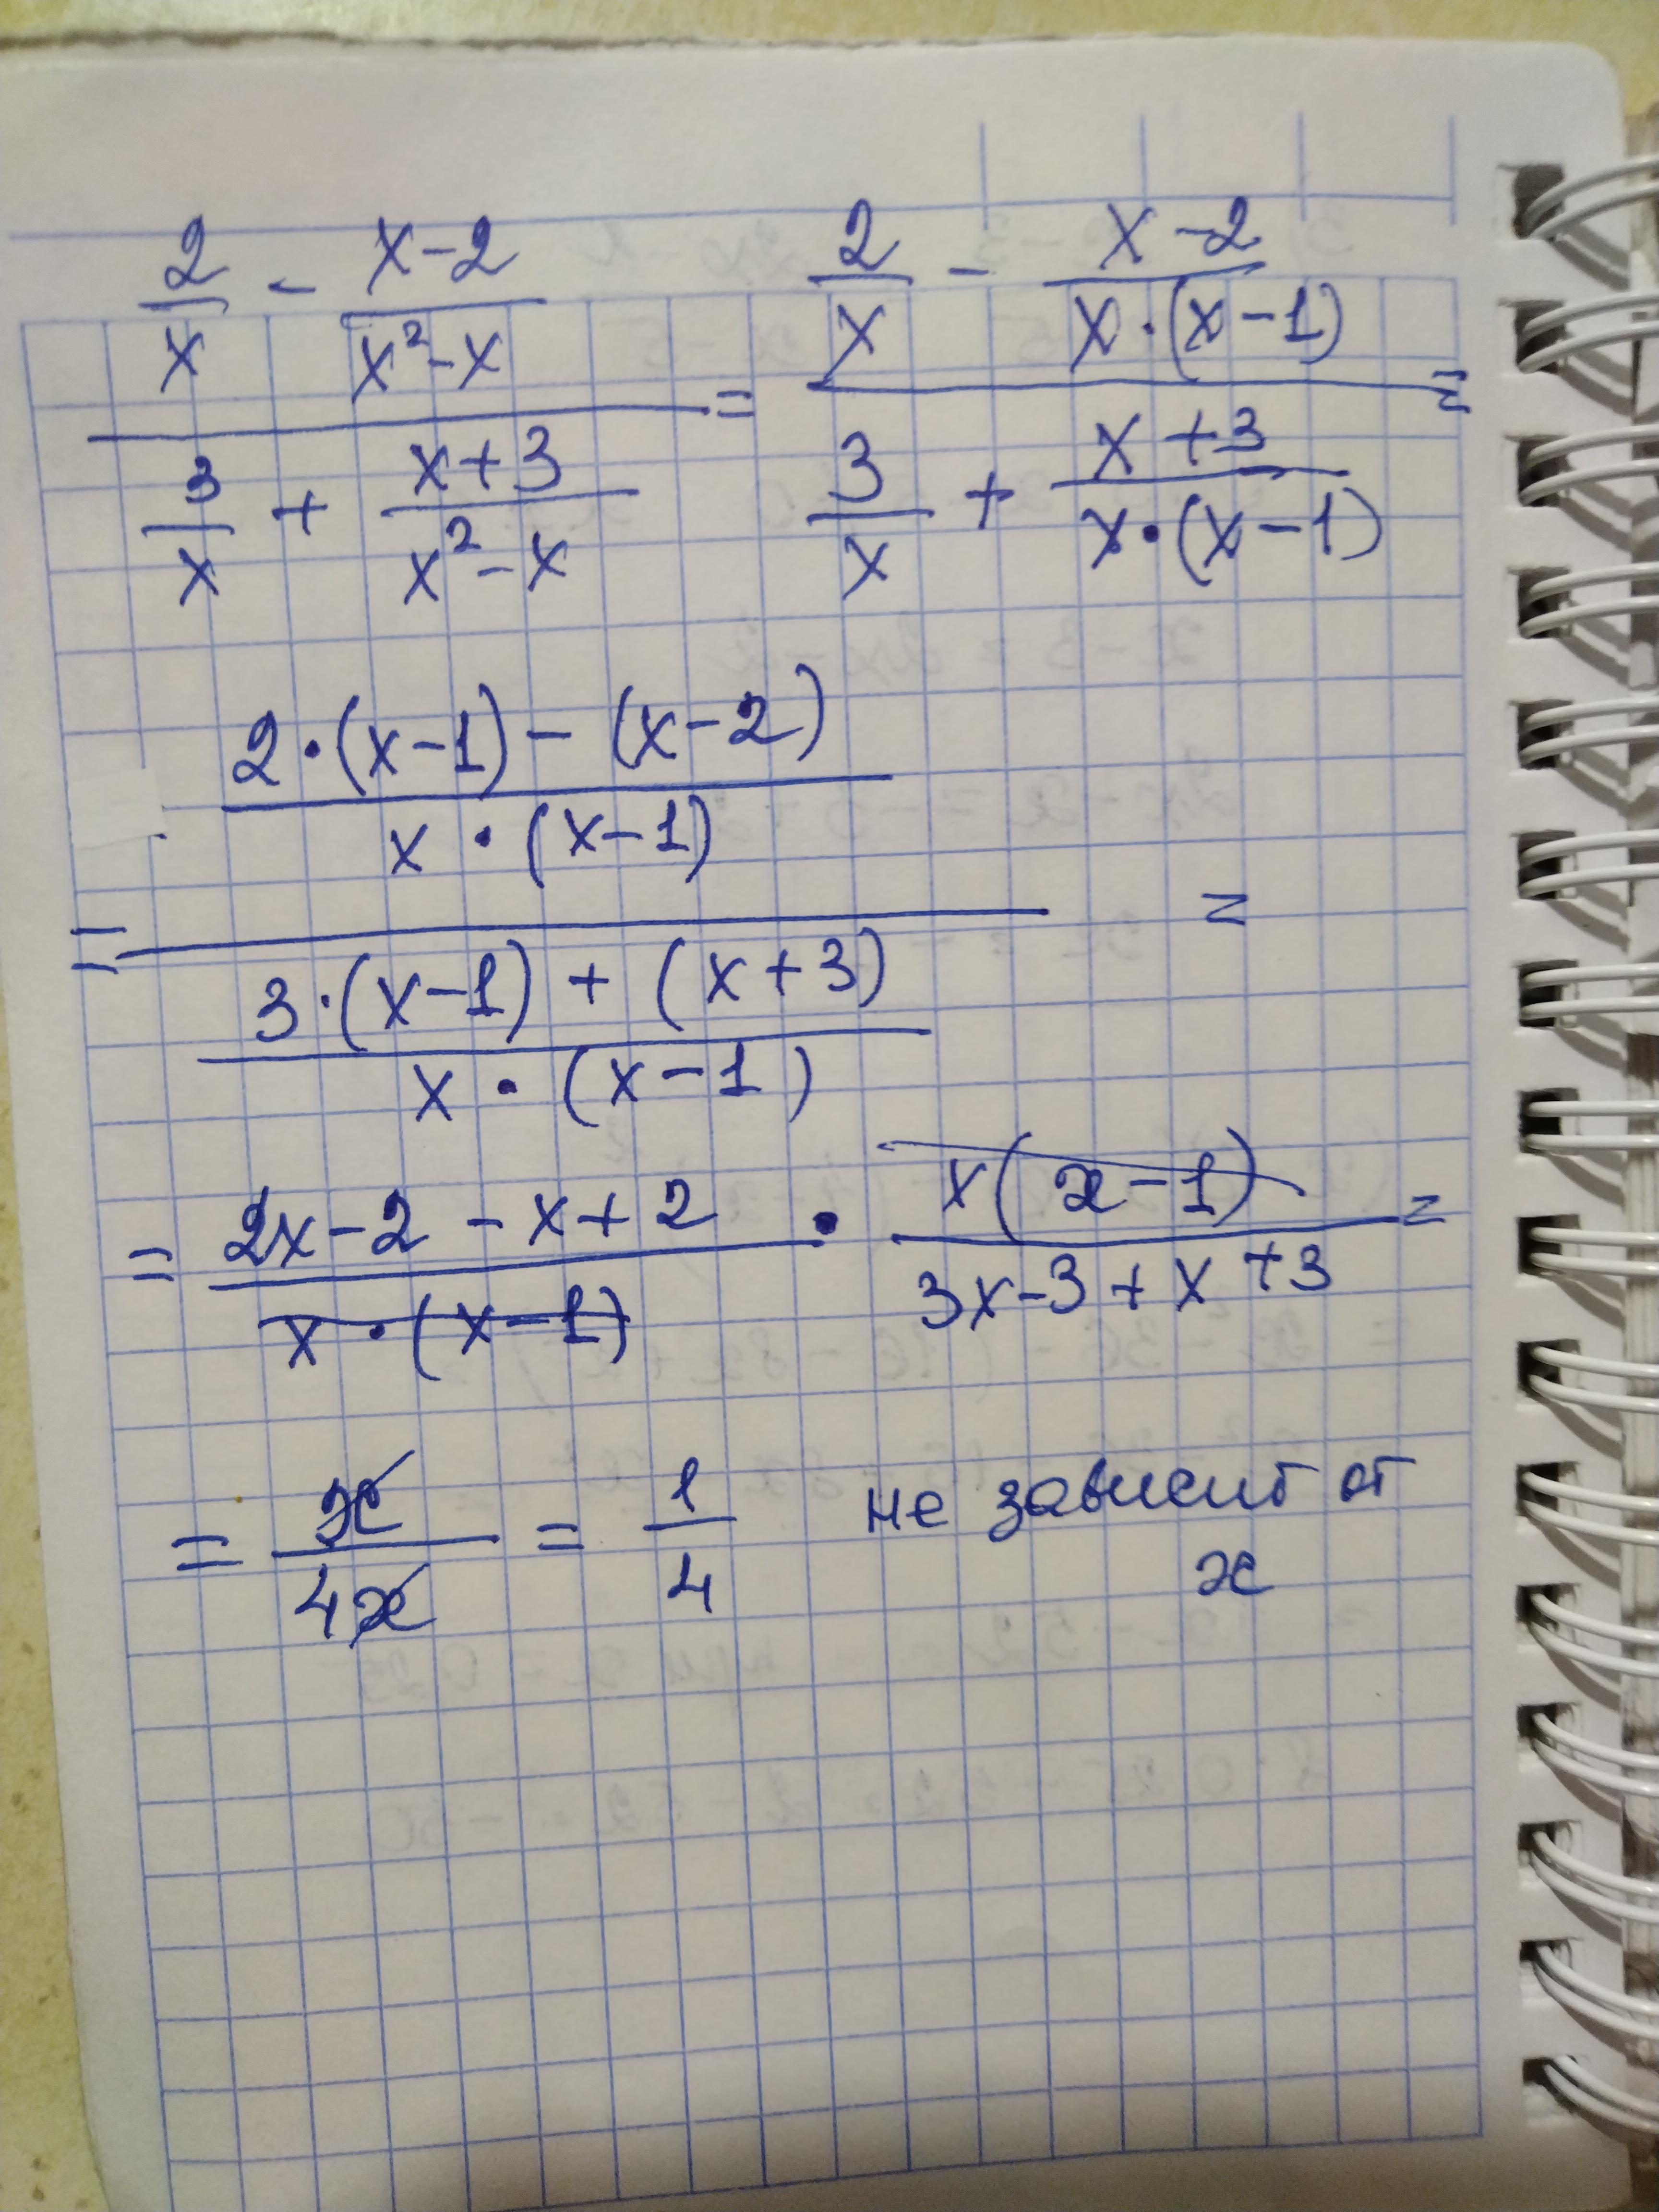 2/x - (x-2)/(x²-x) / 3/x + (x+3)/(x²-x) = 2/x - (x-2)/(x·(x-1)) / 3/x + (x+3)/(x·(x-1)) =
= (2·(x-1) - (x-2))/(x·(x-1)) / (3·(x-1) + (x+3))/(x·(x-1)) =
= (2x-2-x+2)/(x·(x-1)) · x(x-1)/(3x-3+x+3) =
= x/4x = 1/4 не зависит от
x